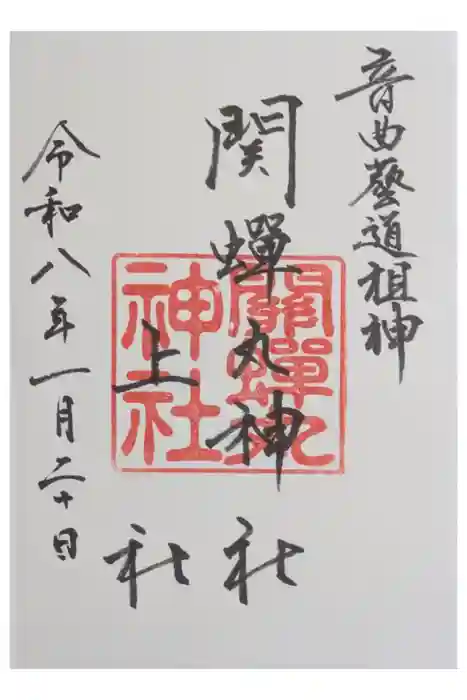 音曲藝道祖神
関蟬丸神社
上社
令和八年一月二十日
關蟬丸
神社